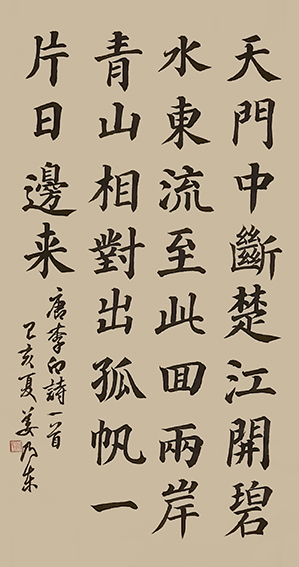 天門中斷楚江開碧
水東流至此回兩岸
青山相對出孤帆一
片日邊来
唐李白詩一首
乙亥夏姜乃东